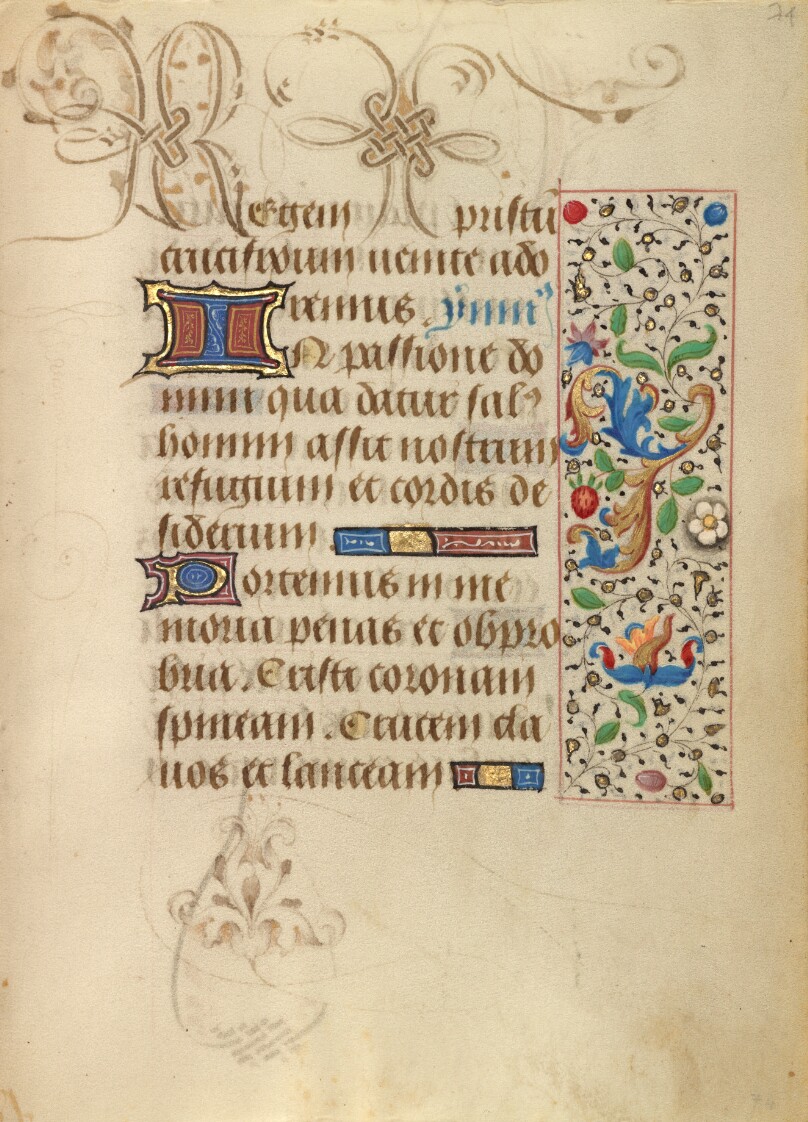 74
Regem Xpristū
crucifixum uenite ado
remus. ymnꝰ
IN passione do
mini qua datur salꝰ
homini assit nostrum
refugium et cordis de
siderium.
Portemus in me
moria penas et obpro
bria. Criste coronam
spineam. Crucem cla
uos et lanceam